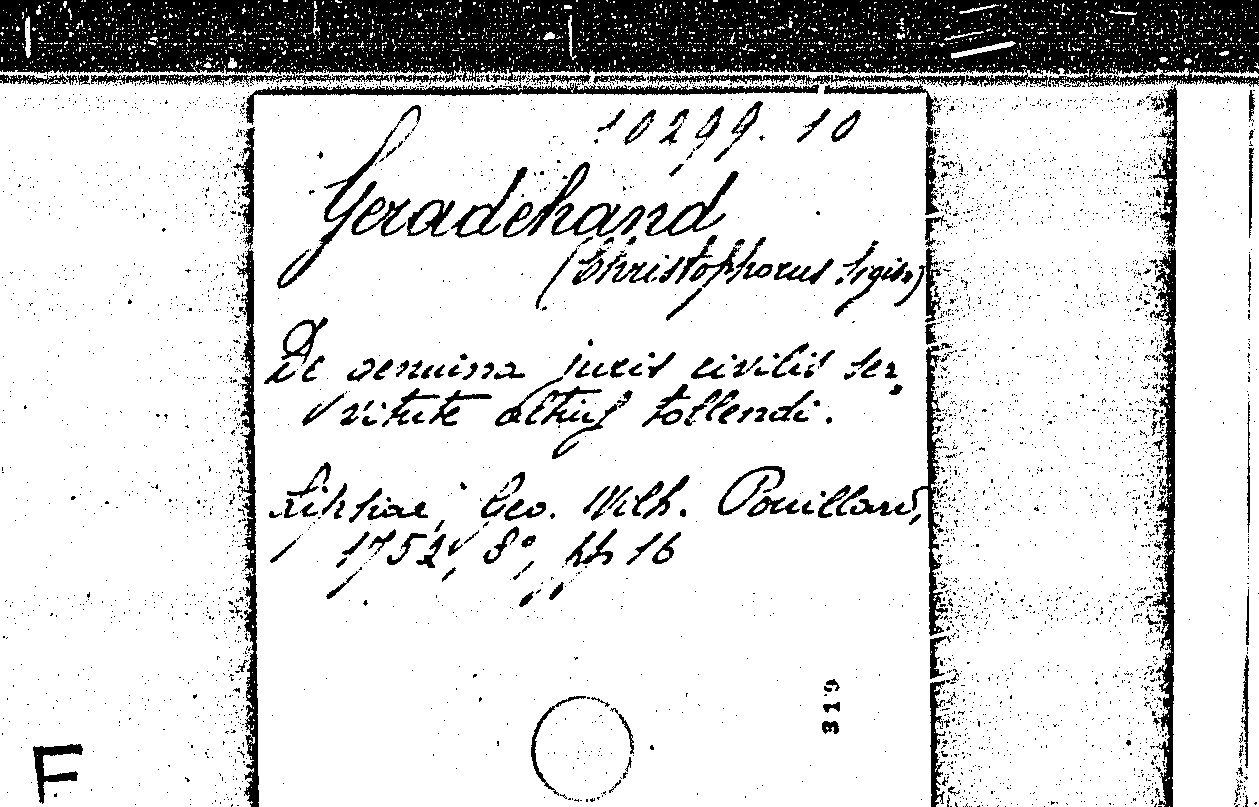 10299. 10
Geradehand
(Christophorus Sigism)
De genuina juris civilis ser„
vitute altius tollendi.
Lipsiae, Geo. Wilh. Pouillard,
1752, 8°, pp 16
319
F